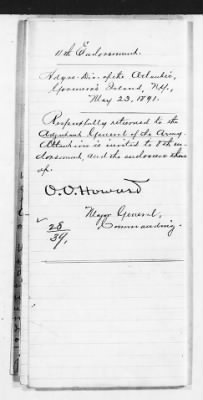 11th Endorsement.
Hdqrs. Div. of the Atlantic,
Governors Island, N.Y.,
May 23, 1891.
Respectfully returned to the
Adjutant General of the Army.
Attention is invited to 8th en-
dorsement, and the endorsement there
of.
O. O. Howard
Major General,
Commanding.
28
34,